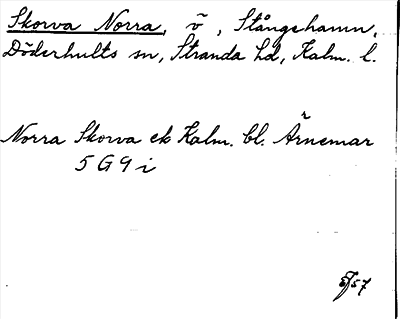 Skorva Norra, ö, Stångehamn,
Döderhults sn, Stranda hd, Kalm. l.
Norra Skorva ek Kalm. bl. Ärnemar
5 G 9 i